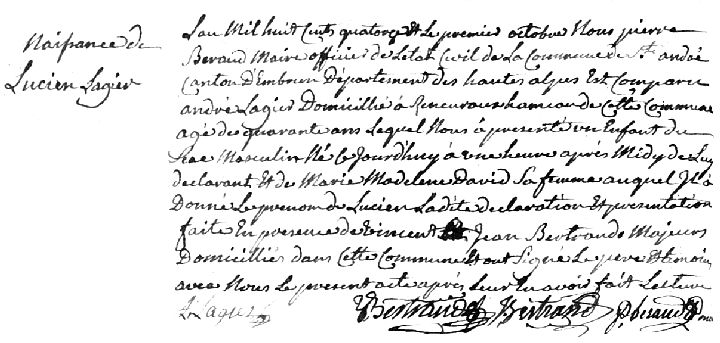 Naissance de
Lucien Lagier
L'an Mil huit Cents quatorze Et Le premier octobre Nous pierre
Beraud Maire officier de L'etat Civil de La Commune de St. andré
Canton D'Embrun Département des hautes alpes Est Comparu
andré Lagier Domicillié à hameau de Cette Commune
agé de quarante ans Lequel Nous à présenté un Enfant du
Masculin Né Ce Jourd'huy à une heure après Midy de Luy
declarant, Et de Marie Madelene David Sa femme auquel Il à
Donné Le prenom de Lucien Ladite declaration Et présentation
faite En presence de Vincent Jean Bertrands Majeurs
Domicilliés dans Cette Commune Et ont Signé Le pere Et temoins
avec Nous Le présent acte après Leur En avoir fait Lecture
Lagier Bertrand Bertrand P. beraud